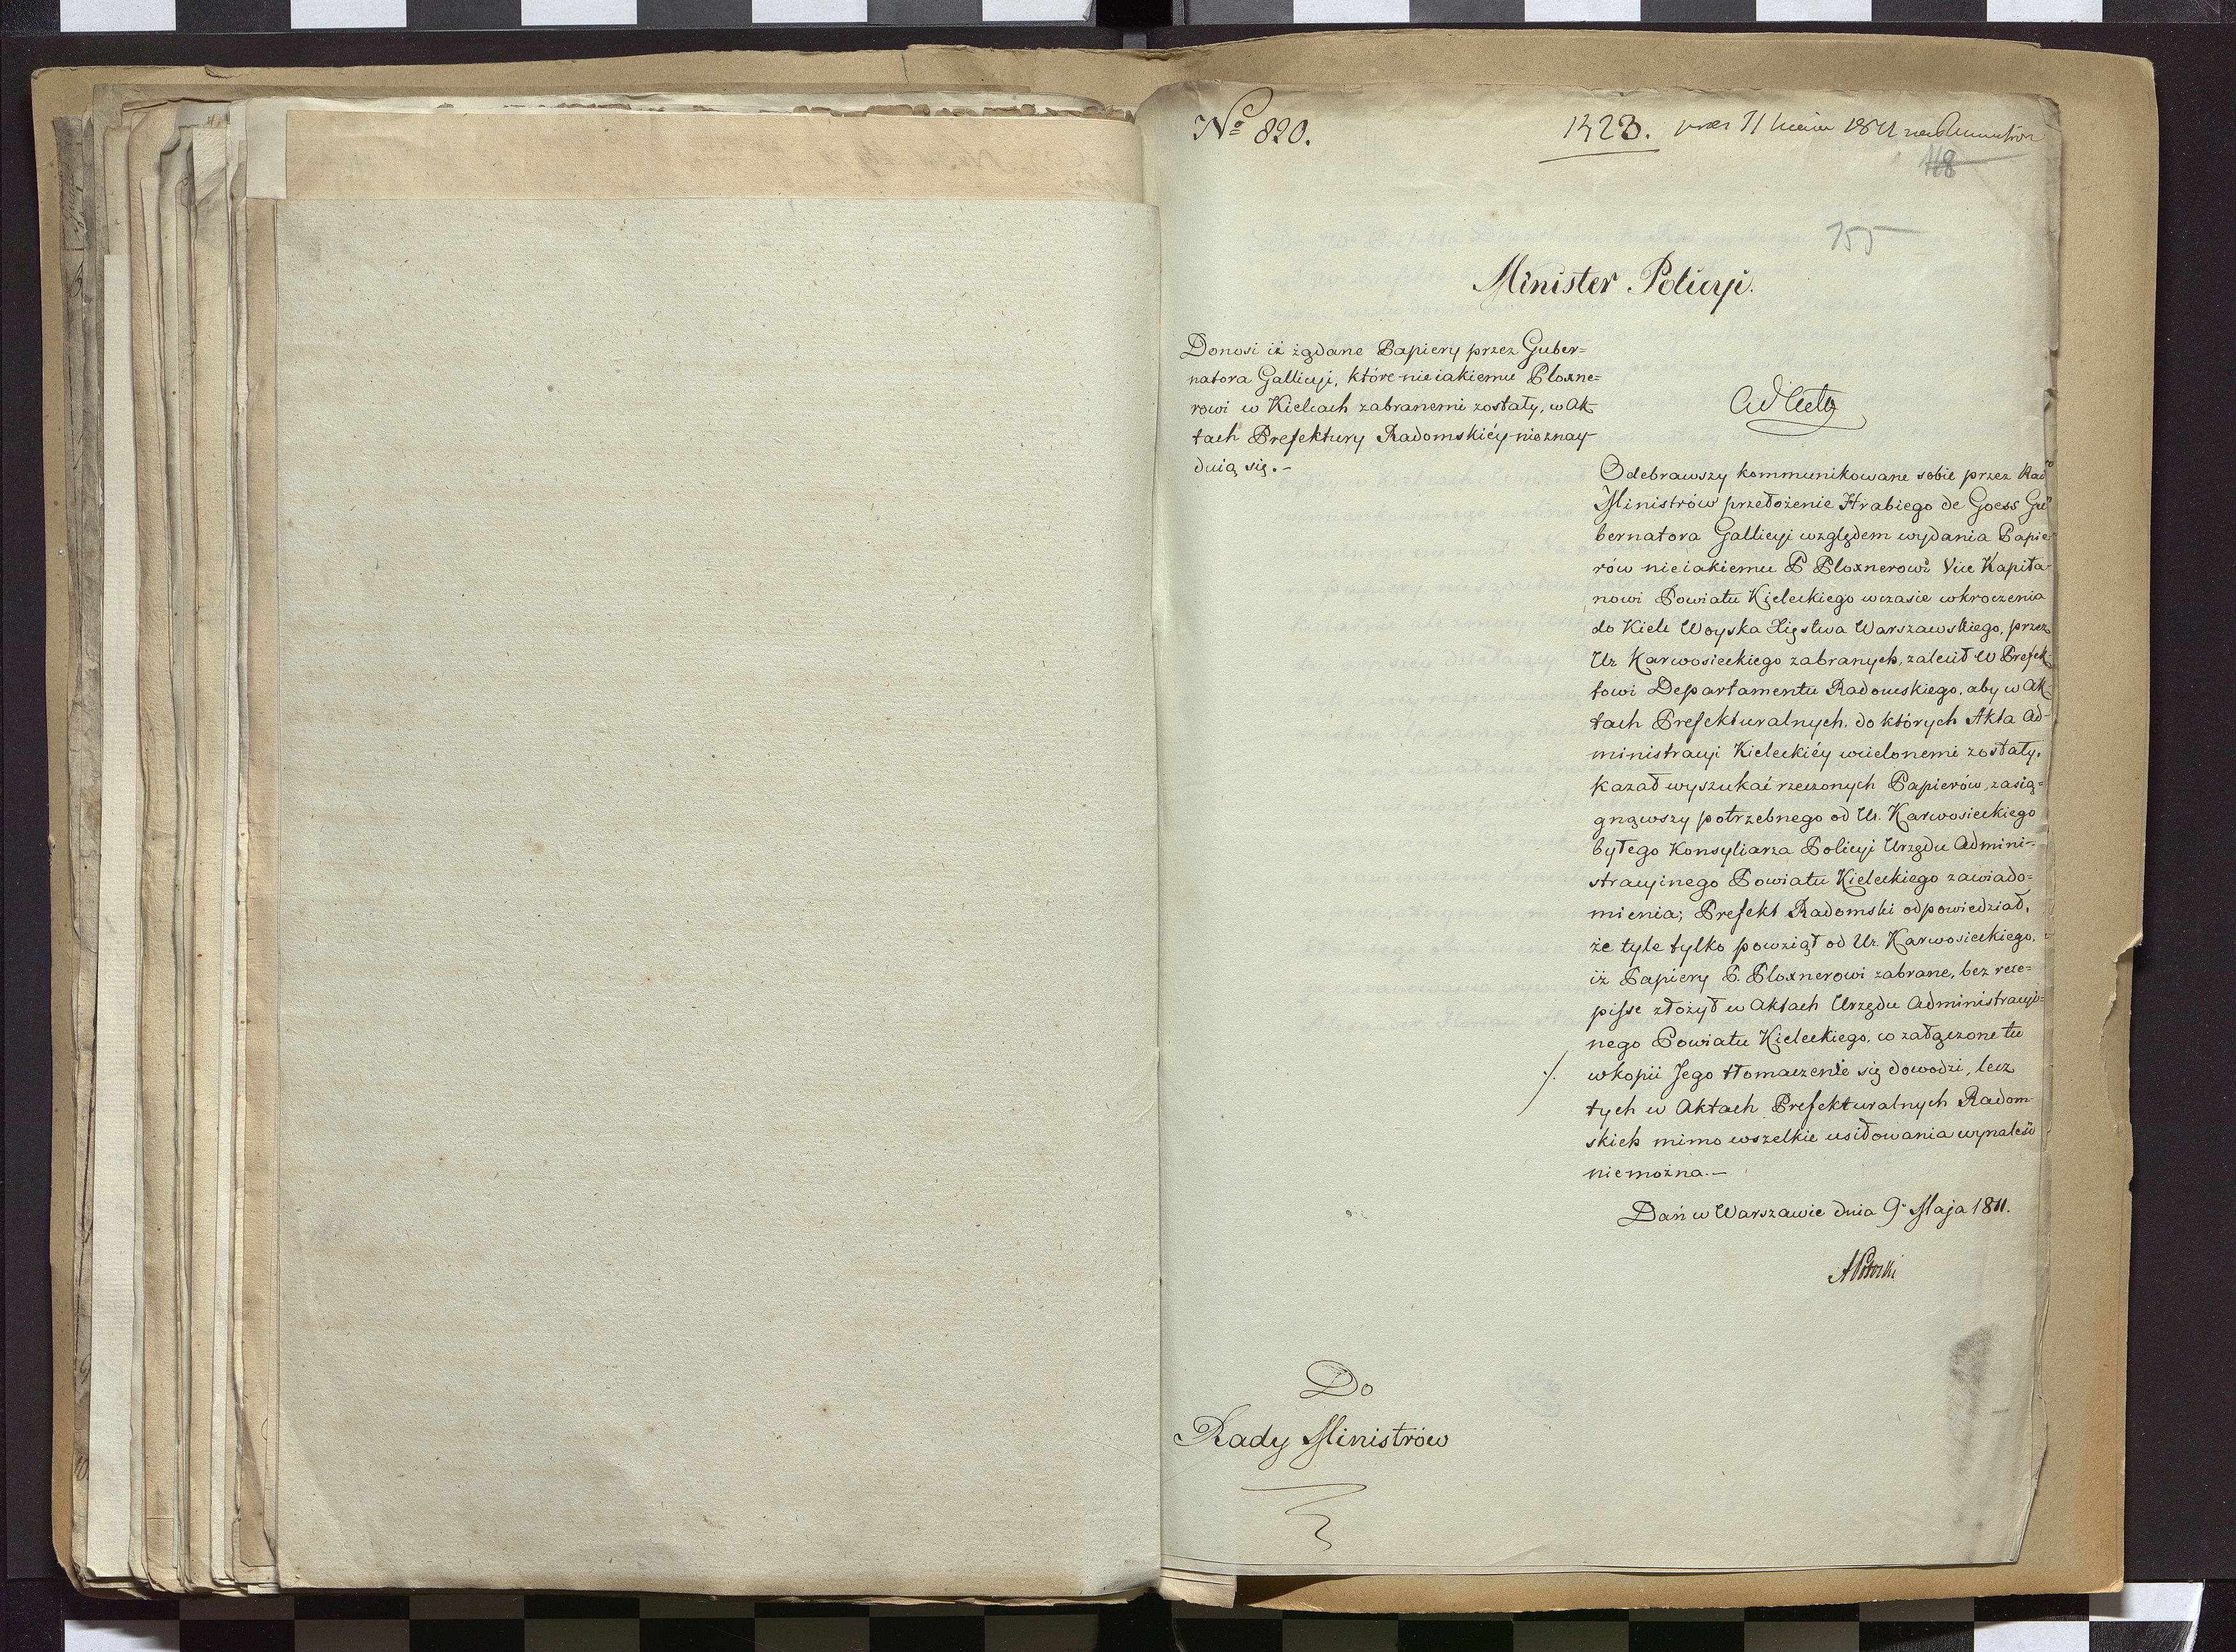 No 820.
1423.
118
155
Minister Policyi.
Donosi iż żądane Papiery przez Guber=
natora Gallicyi, które nieiakiemu Ploxne=
rowi w Kielcach zabranemi zostały, w Ak-
tach Prefektury Radomskiéy nieznay-
duią się.-
Ad Acta
Odebrawszy kommunikowane sobie przez Radę
Ministrów przełożenie Hrabiego de Goess Gu=
bernatora Gallicyi względem wydania Papie-
rów nieiakiemu P Ploxnerowi Vice Kapita-
nowi Powiatu Kieleckiego wczasie wkroczenia
do Kielc Woyska Xięstwa Warszawskiego, przez
Ur. Karwosieckiego zabranych, zalecił W Prefek-
towi Departamentu Radomskiego, aby w Ak-
tach Prefekturalnych, do których Akta Ad-
ministracyi Kieleckiéy wcielonemi zostały,
kazał wyszukać rzeczonych Papierów, zasią=
gnąwszy potrzebnego od Ur. Karwosieckiego
byłego Konsyliarza Policyi Urzędu Admini-
stracyinego Powiatu Kieleckiego zawiado=
mienia; Prefekt Radomski odpowiedział,
że tyle tylko powziął od Ur. Karwosieckiego,
iż Papiery P. Ploxnerowi zabrane, bez rece=
pisse złożył w Aktach Urzędu Administracyi=
nego Powiatu Kieleckiego, co załączone tu
./. w kopii Jego tłomaczenie się dowodzi, lecz
tych w Aktach Prefekturalnych Radom-
skich mimo wszelkie usiłowania wynaleść
niemożna.-
Dań w Warszawie dnia 9 Maja 1811.
APotocki
Do
Rady Ministrów